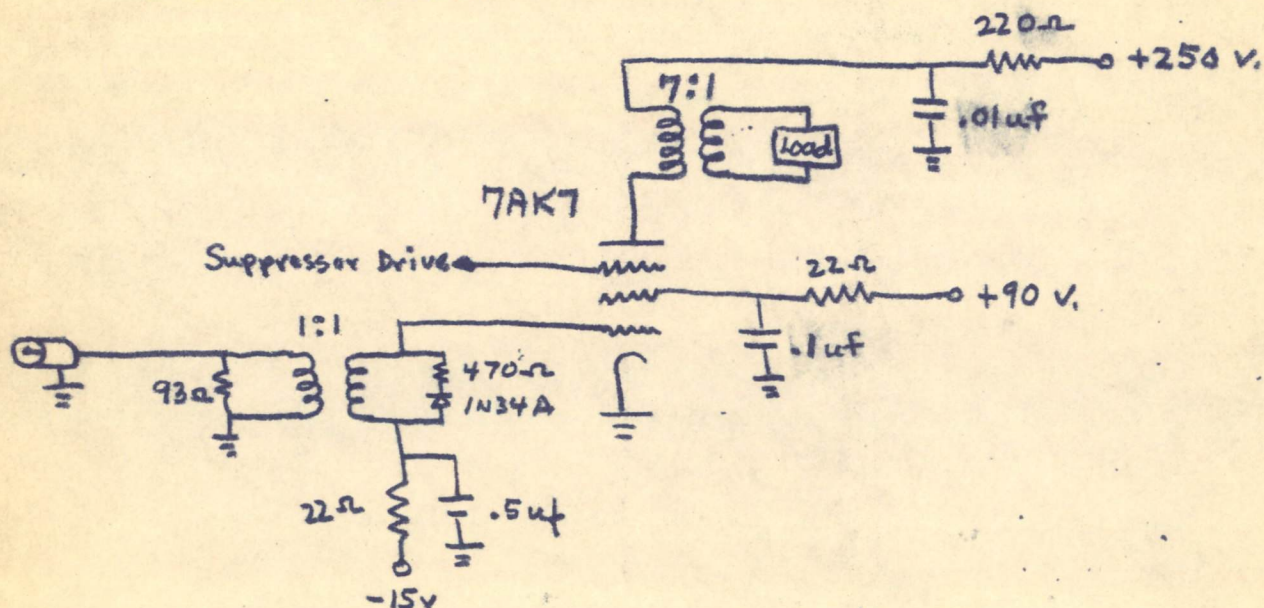 220Ω
+250 v.
7:1
.01uf
Load
7AK7
Suppressor Drive
22Ω
+90 v.
1:1
.1uf
93Ω
470Ω
1N34A
22Ω
.5uf
-15v